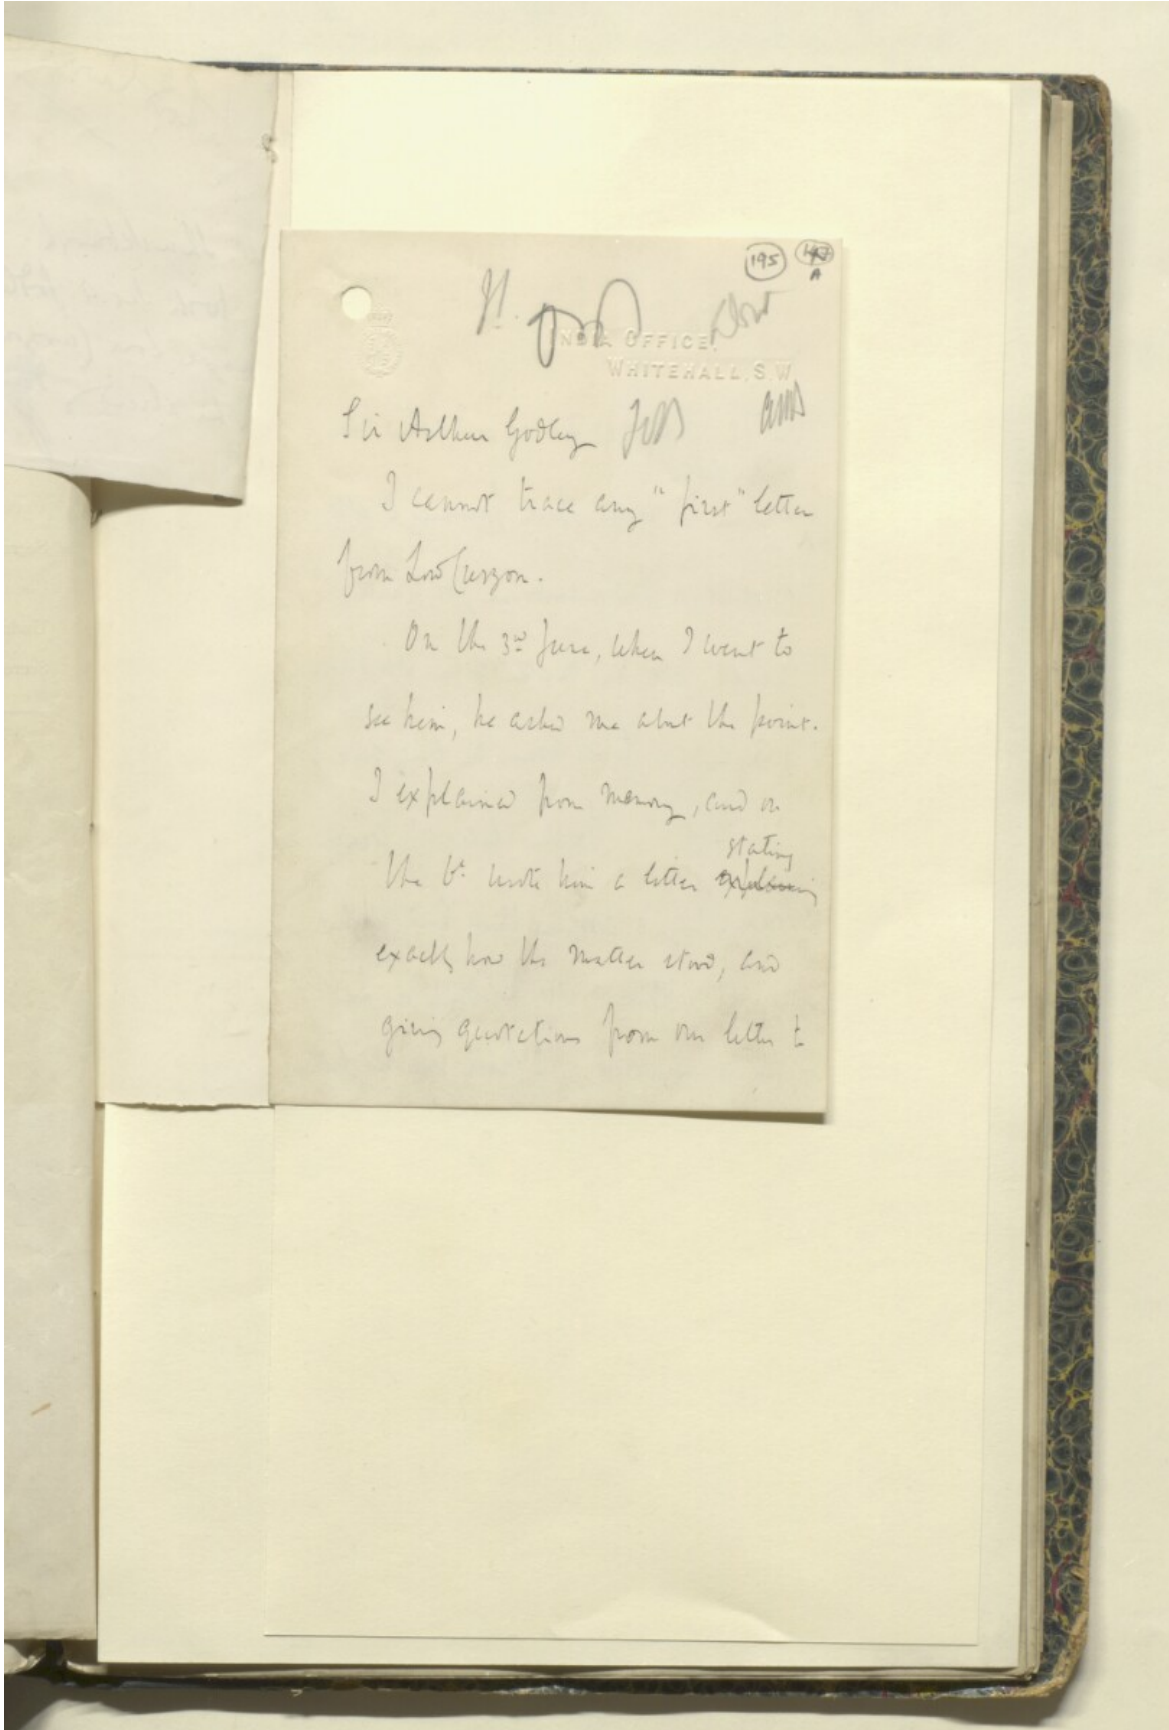 195
A
INDIA OFFICE,
WHITEHALL, S.W.
Sir Arthur Godley
I cannot trace any "first" letter
from Lord Curzon.
On the 3rd June, when I went to
see him, he asked me about the point.
I explained from memory, and on
stating
the 6th wrote him a letter explaining
exactly how the matter stood, and
giving quotations from our letter to